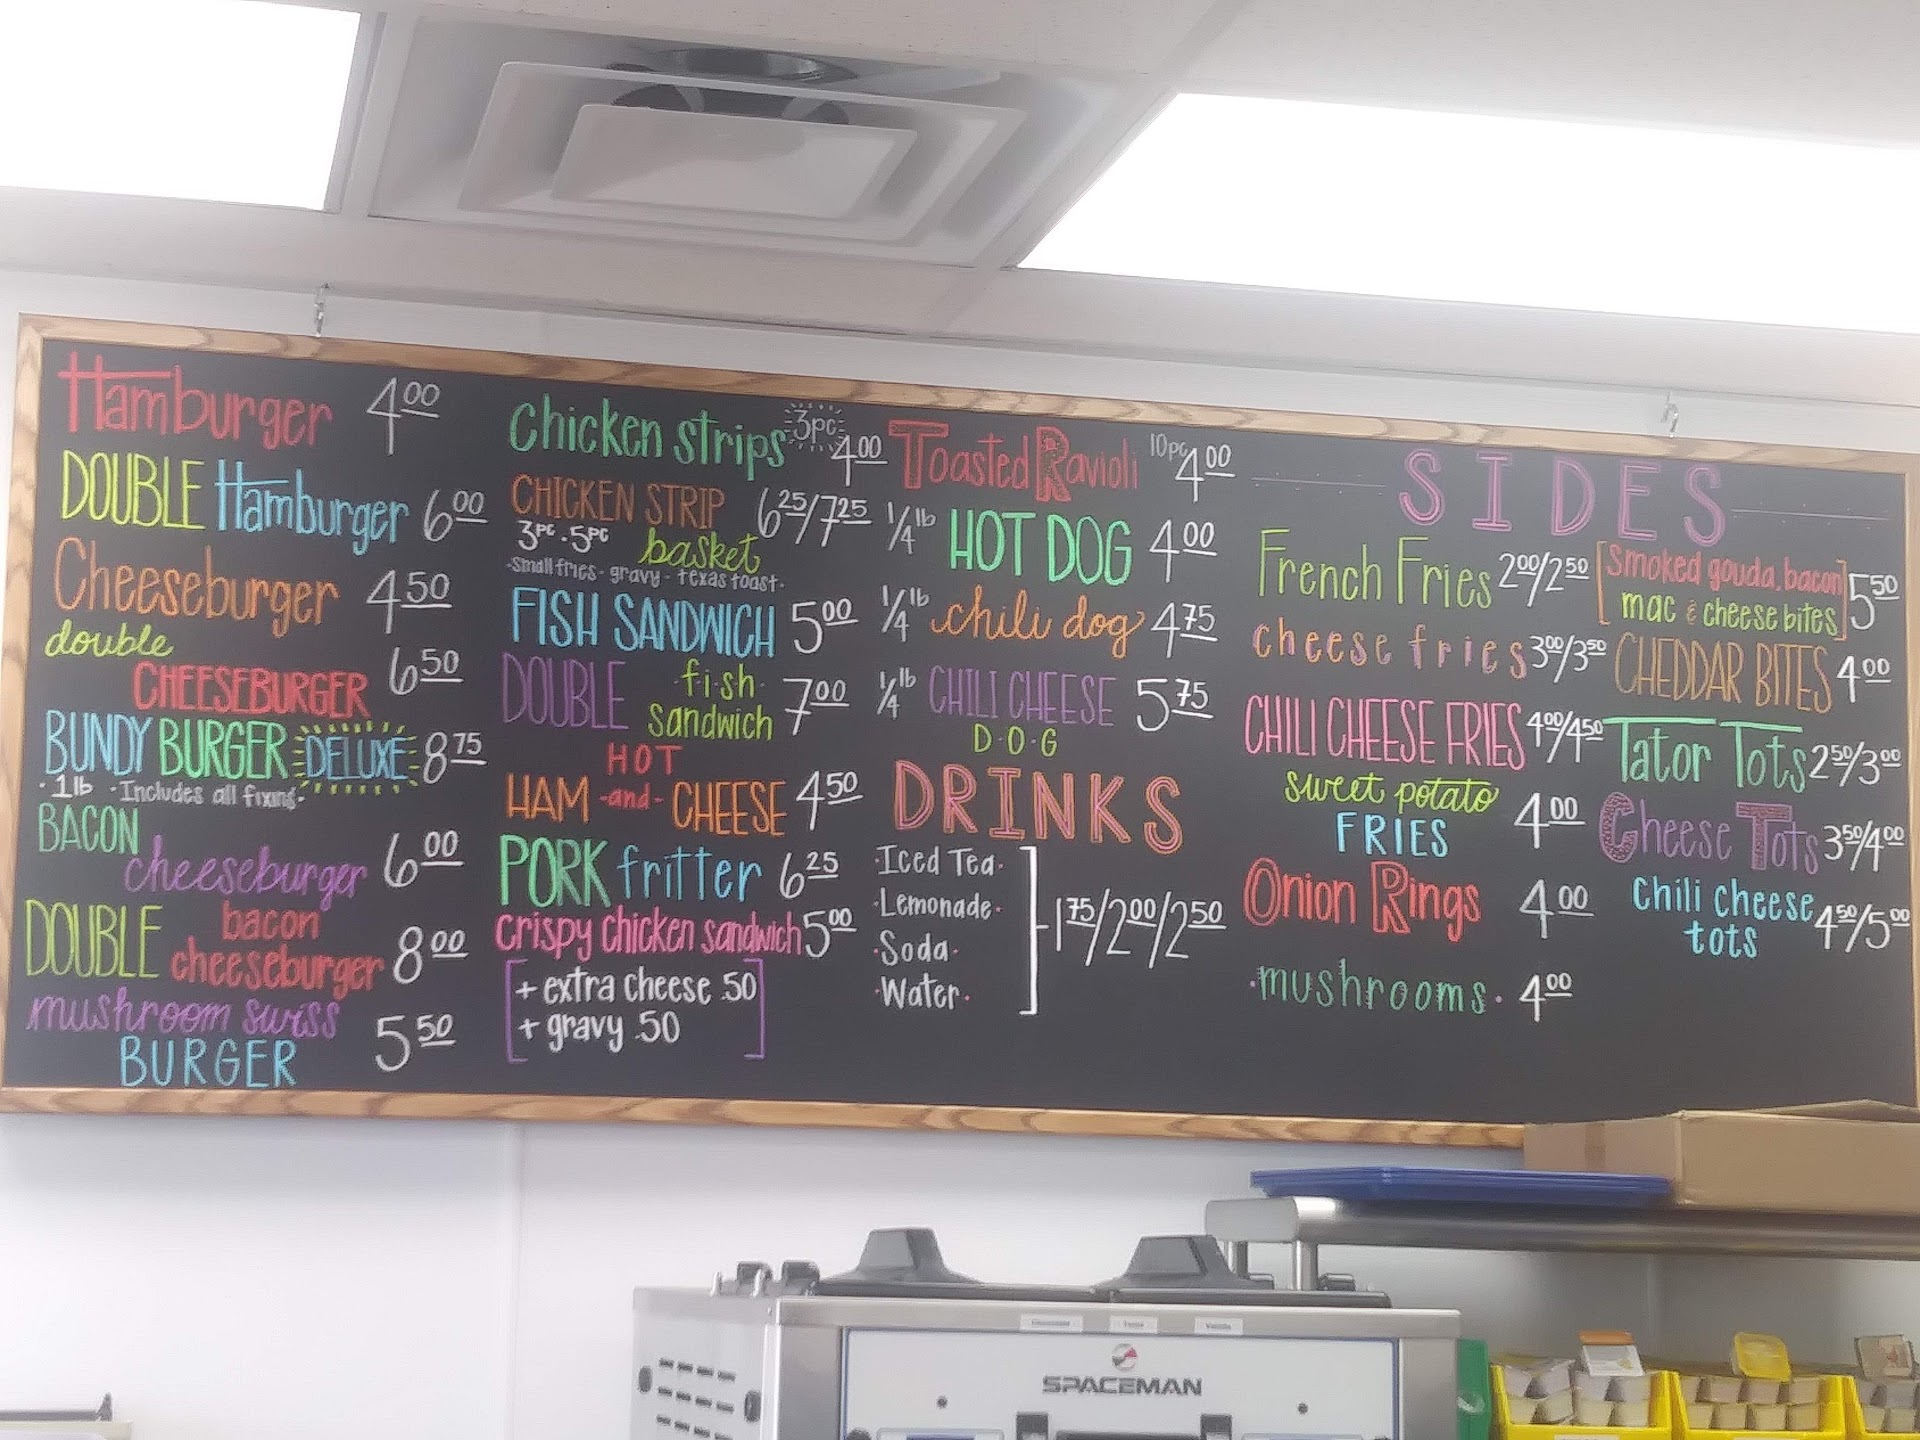 Hamburger 4.00
DOUBLE Hamburger 6.00
Cheeseburger 4.50
double
CHEESEBURGER 6.50
BUNDY BURGER DELUXE 8.75
· 1lb · Includes all fixins ·
BACON
cheeseburger 6.00
DOUBLE bacon
cheeseburger 8.00
mushroom swiss
BURGER 5.50
Chicken strips 3pc 4.00
CHICKEN STRIP 6.25/7.25
3pc · 5pc basket
- small fries - gravy - texas toast -
FISH SANDWICH 5.00
DOUBLE fish
sandwich 7.00
HOT
HAM -and- CHEESE 4.50
PORK fritter 6.25
crispy chicken sandwich 5.00
+ extra cheese .50
+ gravy .50
Toasted Ravioli 10pc 4.00
1/4 lb HOT DOG 4.00
1/4 lb chili dog 4.75
1/4 lb CHILI CHEESE 5.75
D·O·G
DRINKS
· Iced Tea ·
· Lemonade ·
· Soda ·
· Water ·
1.75/2.00/2.50
SIDES
French Fries 2.00/2.50
cheese fries 3.00/3.50
CHILI CHEESE FRIES 4.00/4.50
sweet potato
FRIES 4.00
Onion Rings 4.00
· mushrooms · 4.00
[Smoked gouda, bacon
mac & cheese bites] 5.50
CHEDDAR BITES 4.00
Tator Tots 2.50/3.00
Cheese Tots 3.50/4.00
Chili cheese
tots 4.50/5.00
SPACEMAN